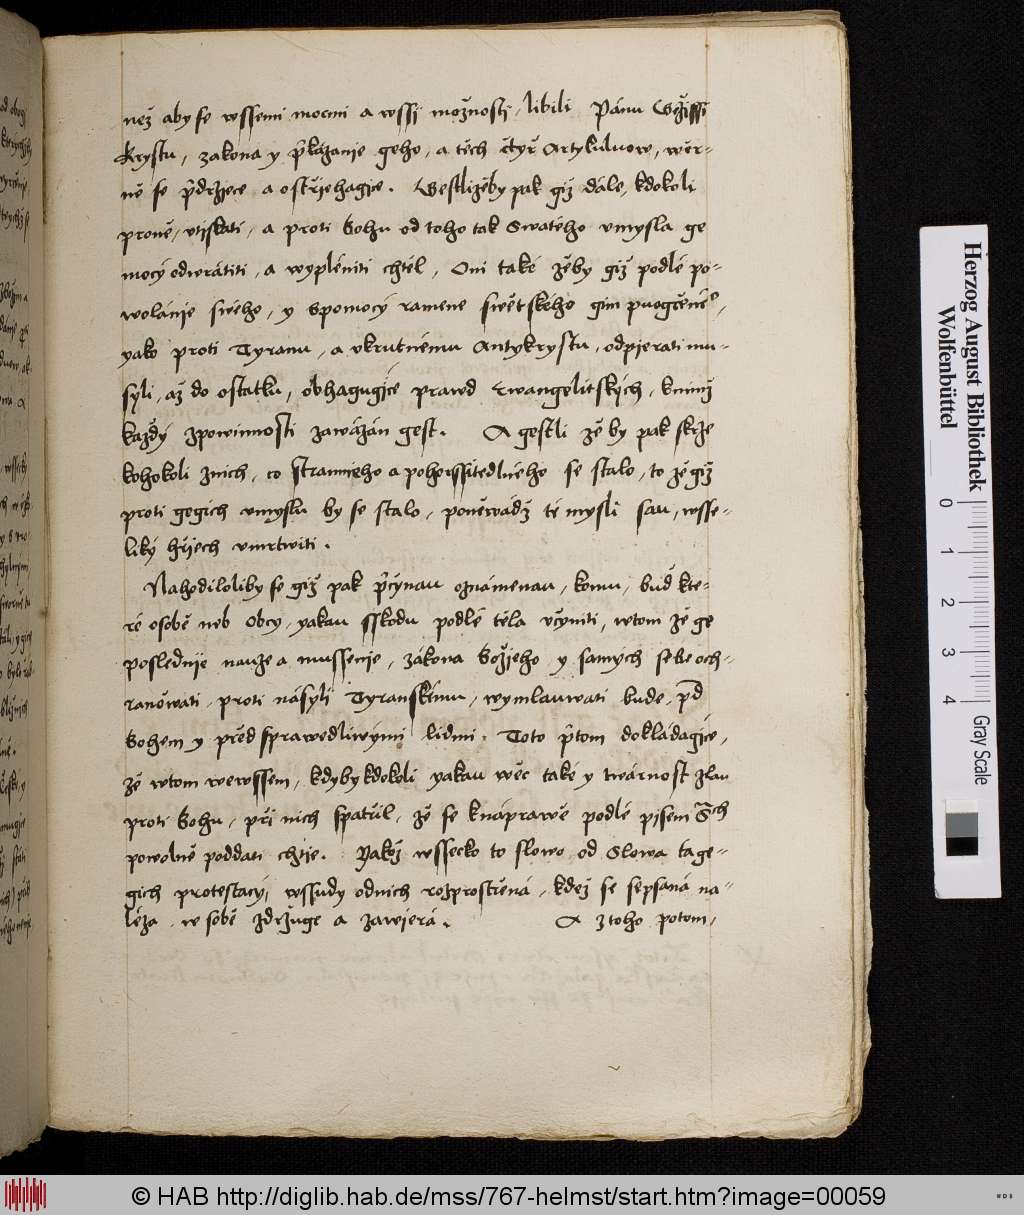 než aby se wssemi mocmi a wssij možnostij, libili Pánu Gežissi
Krystu, zakona y p̃kázanie geho, a těch čtyř Artykuluow, wěr-
ně se p̃držiece a ostřiehagice. Gestližeby pak giž dále, kdokoli
proně, utiskati, a proti Bohu od toho tak Swatého umysla ge
mocý odwrátiti, a wypléniti chtěl, Oni také žěby giž podlé po-
wolánie swého, y Spomocý ramene swětského gim puogčené°,
yako proti Tyranu, a ukrutnému Antykrystu, odpierati mu-
syli, až do ostatku, obhagugice prawd Ewangelitských, knimž
každý zpowinnosti zawázán gest. A gestli žě by pak skrže
kohokoli znich, co strannieho a pohorssitedlného se stalo, to žě giž
proti gegich umyslu by se stalo, poněwádž té mysli sau, wsse-
liký hřiech umrtwiti.
Nahodiloliby se giž pak p̃čýnau oznámenau, komu, buď kte-
ré osobě neb Obcy, yakau sskodu podlé těla učyniti, wtom žě ge
poslednije nauze a mussenie, zákona Božieho y samých sebe och-
raňowati, proti násyli Tyranskému, wymlauwati bude, p̃d
Bohem y před sprawedliwými lidmi. Toto p̃tom dokládagice,
žě wtom wewssem, kdyby kdokoli yakau wěc také y twárnost zlau
proti Bohu, při nich spatřil, žě se knáprawě podlé pisem S̃ch
powolně poddati chtie. Yakž wssecko to slowo od Slowa ta ge-
gich protestacý, wssudy odnich rozprostřěná, kdež se sepsaná na-
léza, w sobě zdržuge a zawierá. A ztoho potom,
Herzog August Bibliothek
Wolfenbüttel
0 1 2 3 4
Gray Scale
© HAB http://diglib.hab.de/mss/767-helmst/start.htm?image=00059